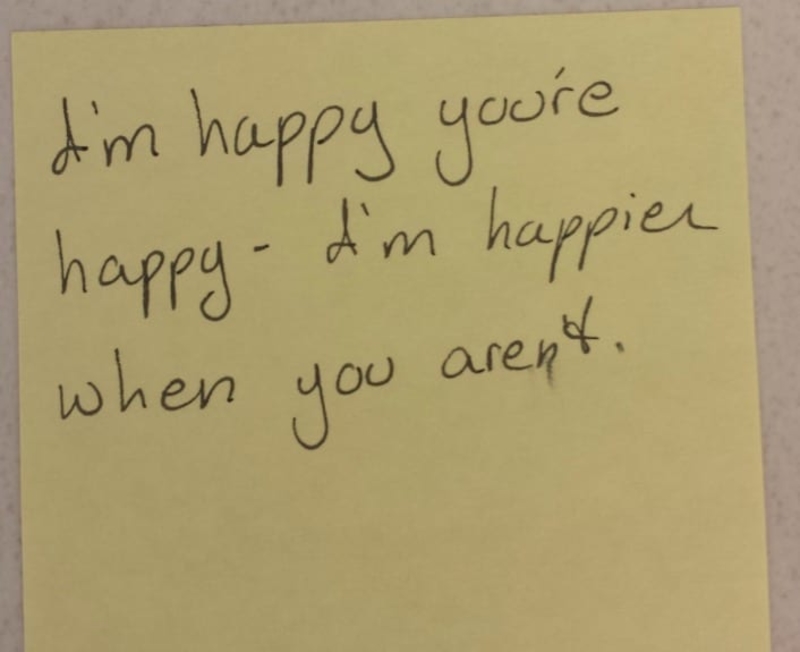 I'm happy you're
happy - I'm happier
when you aren't.